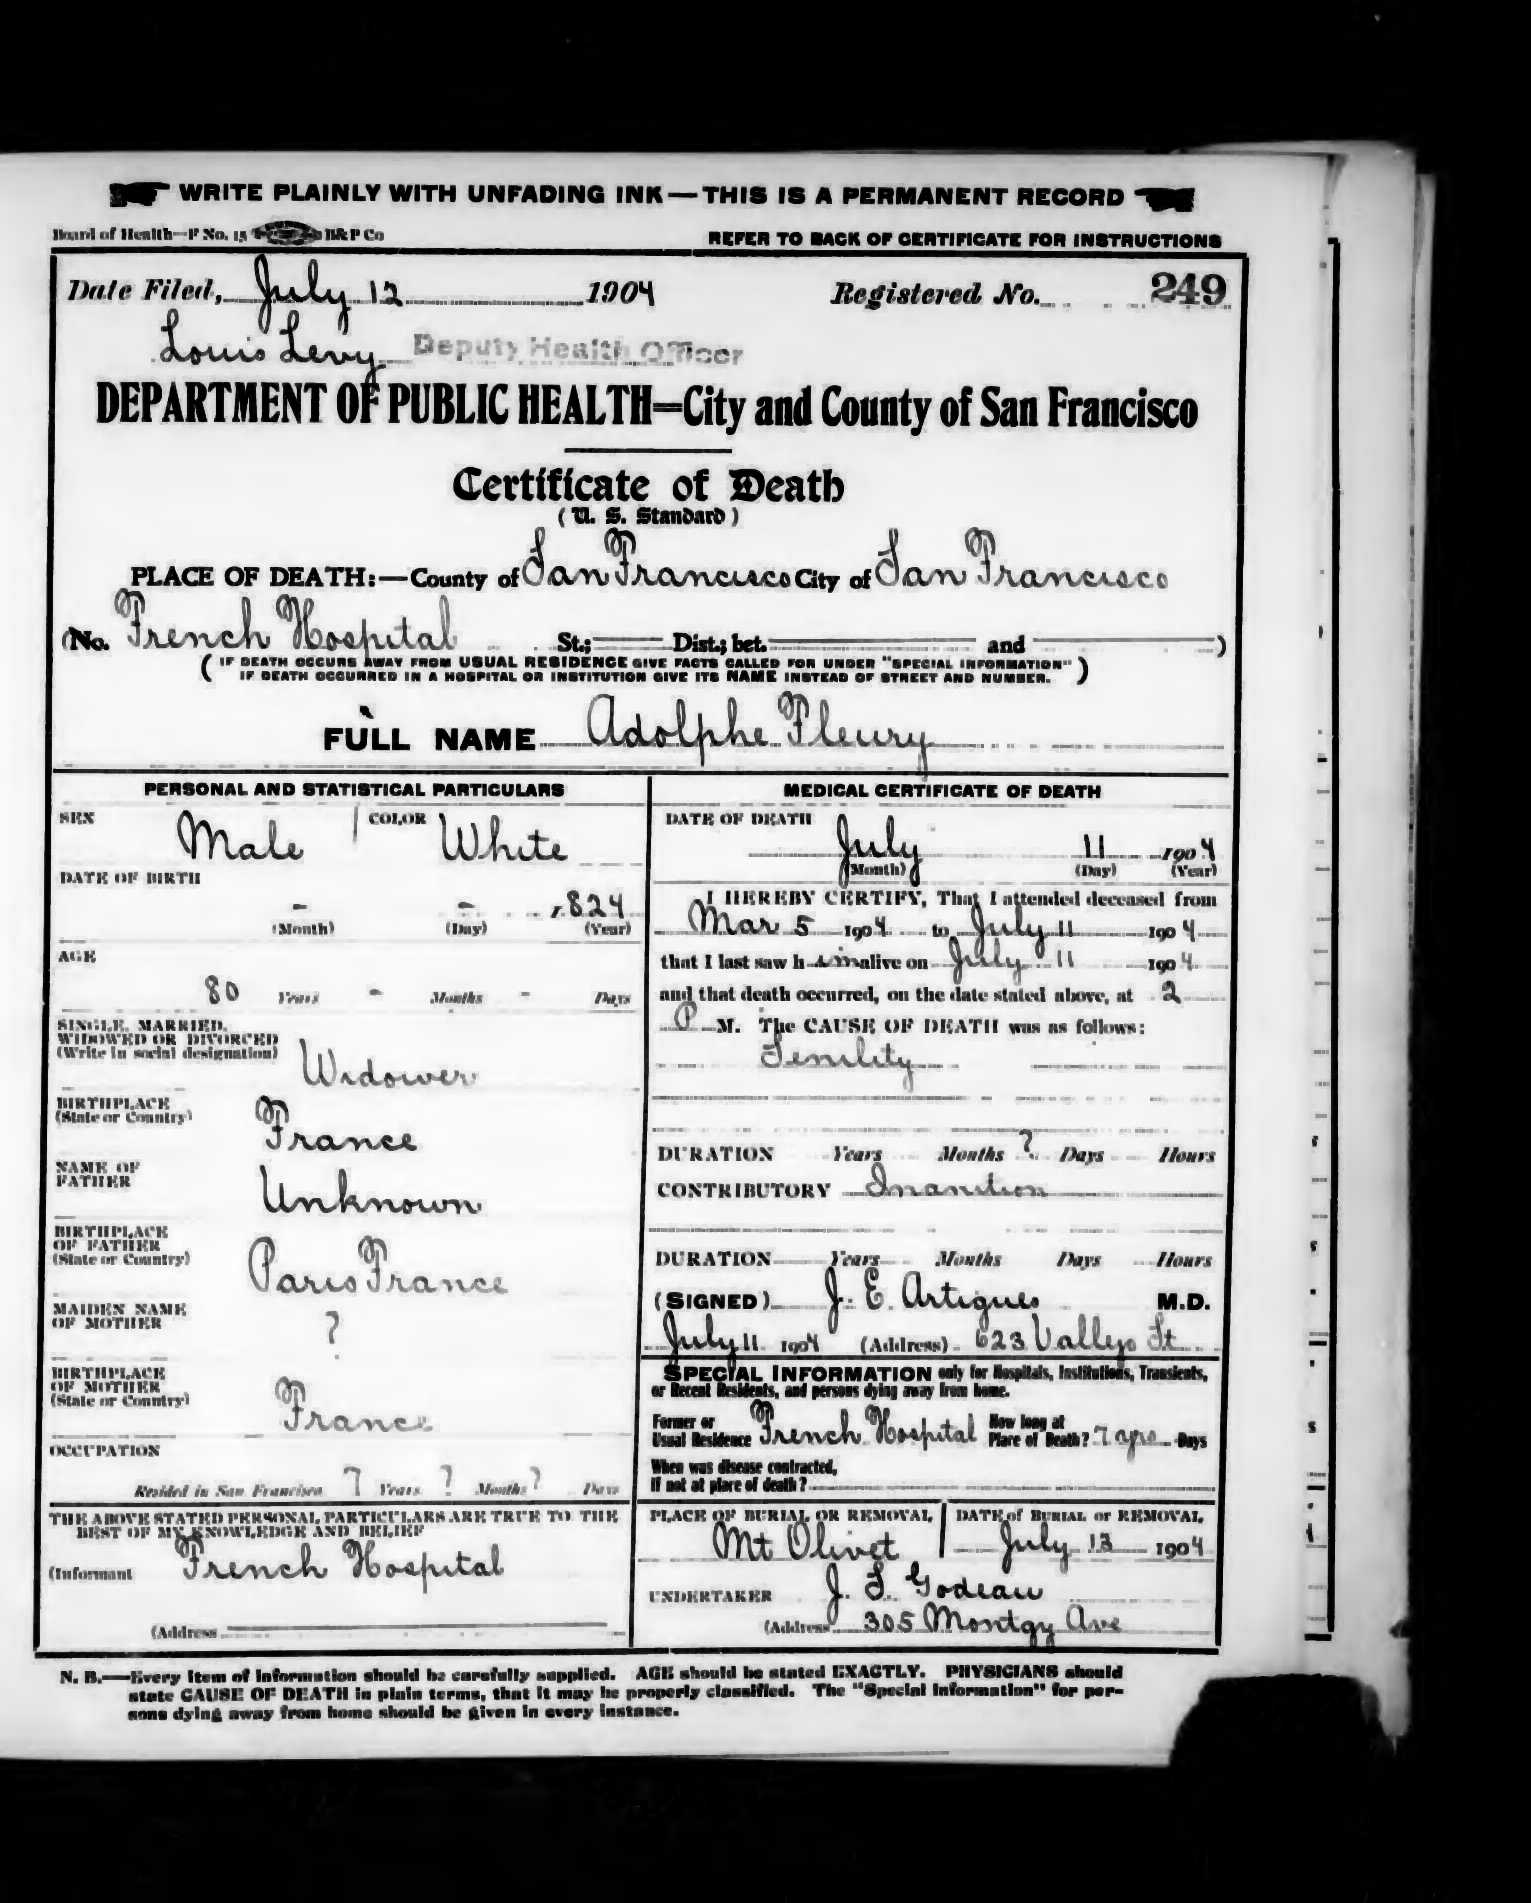 WRITE PLAINLY WITH UNFADING INK—THIS IS A PERMANENT RECORD
Board of Health—F No. 15 B&P Co
REFER TO BACK OF CERTIFICATE FOR INSTRUCTIONS
Date Filed, July 12 1904 Registered No. 249
Louis Levy Deputy Health Officer
DEPARTMENT OF PUBLIC HEALTH—City and County of San Francisco
Certificate of Death
(U. S. Standard)
PLACE OF DEATH:—County of San Francisco City of San Francisco
(No. French Hospital St.; Dist.; bet. and )
(IF DEATH OCCURS AWAY FROM USUAL RESIDENCE GIVE FACTS CALLED FOR UNDER "SPECIAL INFORMATION"
IF DEATH OCCURRED IN A HOSPITAL OR INSTITUTION GIVE ITS NAME INSTEAD OF STREET AND NUMBER.)
FULL NAME Adolphe Fleury
PERSONAL AND STATISTICAL PARTICULARS
SEX Male COLOR White
DATE OF BIRTH
- - 1824
(Month) (Day) (Year)
AGE
80 Years - Months - Days
SINGLE, MARRIED,
WIDOWED OR DIVORCED
(Write in social designation) Widower
BIRTHPLACE
(State or Country) France
NAME OF
FATHER Unknown
BIRTHPLACE
OF FATHER
(State or Country) Paris France
MAIDEN NAME
OF MOTHER ?
BIRTHPLACE
OF MOTHER
(State or Country) France
OCCUPATION
Resided in San Francisco 7 Years ? Months ? Days
THE ABOVE STATED PERSONAL PARTICULARS ARE TRUE TO THE
BEST OF MY KNOWLEDGE AND BELIEF
(Informant French Hospital
(Address
MEDICAL CERTIFICATE OF DEATH
DATE OF DEATH
July 11 1904
(Month) (Day) (Year)
I HEREBY CERTIFY, That I attended deceased from
Mar 5 1904 to July 11 1904
that I last saw h im alive on July 11 1904
and that death occurred, on the date stated above, at 2
P M. The CAUSE OF DEATH was as follows:
Senility
DURATION Years Months ? Days Hours
CONTRIBUTORY Inanition
DURATION Years Months Days Hours
(SIGNED) J. E. Artigues M.D.
July 11 1904 (Address) 623 Vallejo St
SPECIAL INFORMATION only for Hospitals, Institutions, Transients,
or Recent Residents, and persons dying away from home.
Former or
Usual Residence French Hospital How long at
Place of Death? 7 yrs Days
When was disease contracted,
If not at place of death?
PLACE OF BURIAL OR REMOVAL DATE of BURIAL or REMOVAL
Mt Olivet July 13 1904
UNDERTAKER J. S. Godeau
(Address 305 Montgy Ave
N. B.—Every item of information should be carefully supplied. AGE should be stated EXACTLY. PHYSICIANS should
state CAUSE OF DEATH in plain terms, that it may be properly classified. The "Special Information" for per-
sons dying away from home should be given in every instance.